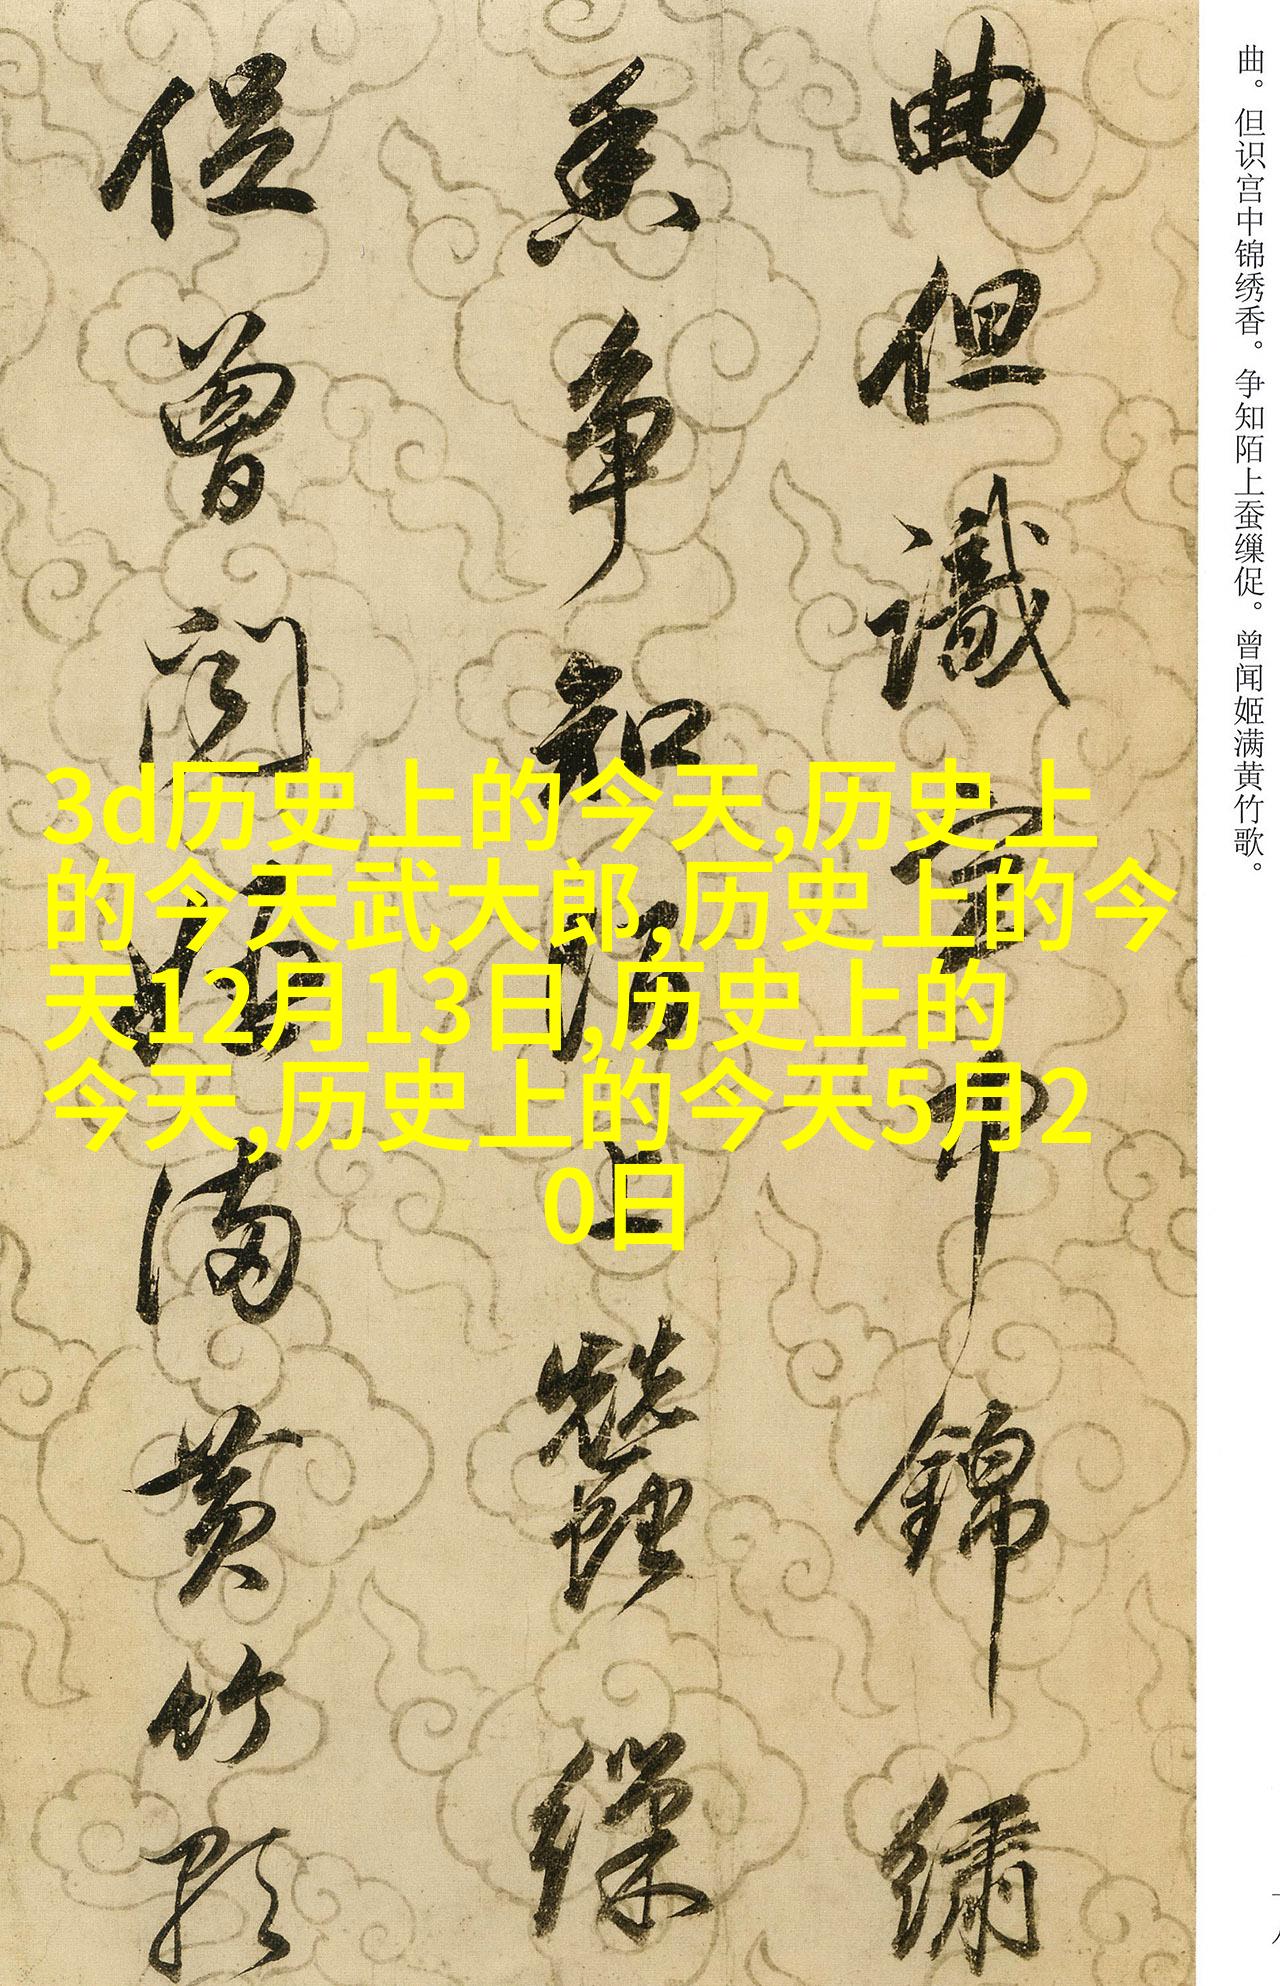 曲。但识宫中锦绣香。争知陌上蚕缫促。曾闻姬满黄竹歌。
曲但識宮中錦繡
香争知陌上蠶繅
促曾闻姬满黄竹歌
3d历史上的今天,历史上
的今天武大郎,历史上的今
天12月13日,历史上的
今天,历史上的今天5月2
0日